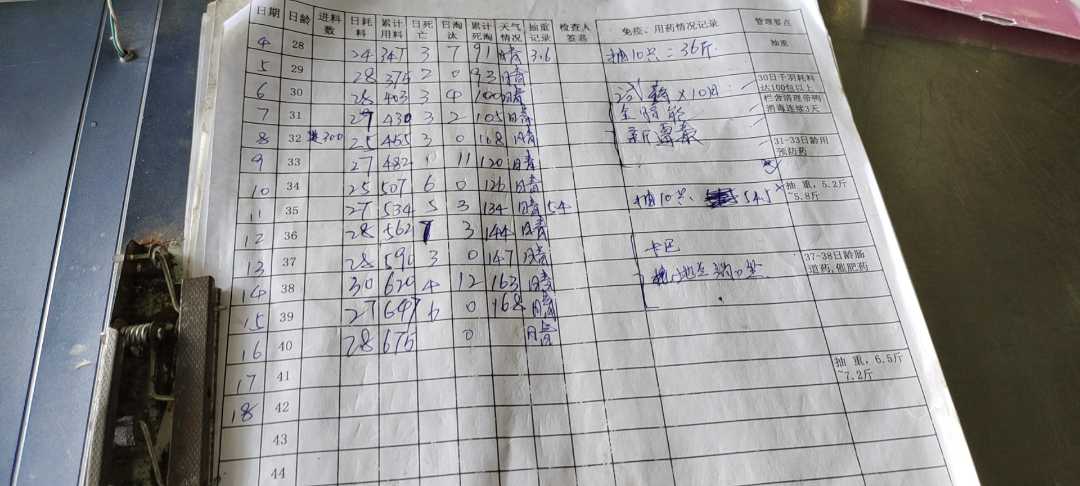 日期 日龄 进料数 日耗料 累计用料 日死亡 日淘汰 累计死淘 天气情况 抽重记录 检查人签恙 免疫、用药情况记录 管理要点
4 28 24 347 3 7 91 晴 3.6 抽10只=36斤 抽重
5 29 28 375 2 0 93 晴
6 30 28 403 3 4 100 晴 ×10日 30日千羽耗料达100包以上
7 31 27 430 3 2 105 晴 栏舍清理带鸭消毒连续3天
8 32 进300 25 455 3 0 108 晴 新霉素 31-33日龄用预防药
9 33 27 482 11 120 晴
10 34 25 507 6 0 126 晴 抽重,5.2斤~5.8斤
11 35 27 534 5 3 134 晴 54 抽10只 54.5
12 36 28 562 7 3 144 晴
13 37 28 590 3 0 147 晴 卡巴 37-38日龄肠道药,催肥药
14 38 30 620 4 12 163 晴
15 39 27 647 6 0 168 晴
16 40 28 675 0 晴
17 41 抽重,6.5斤~7.2斤
18 42
43
44